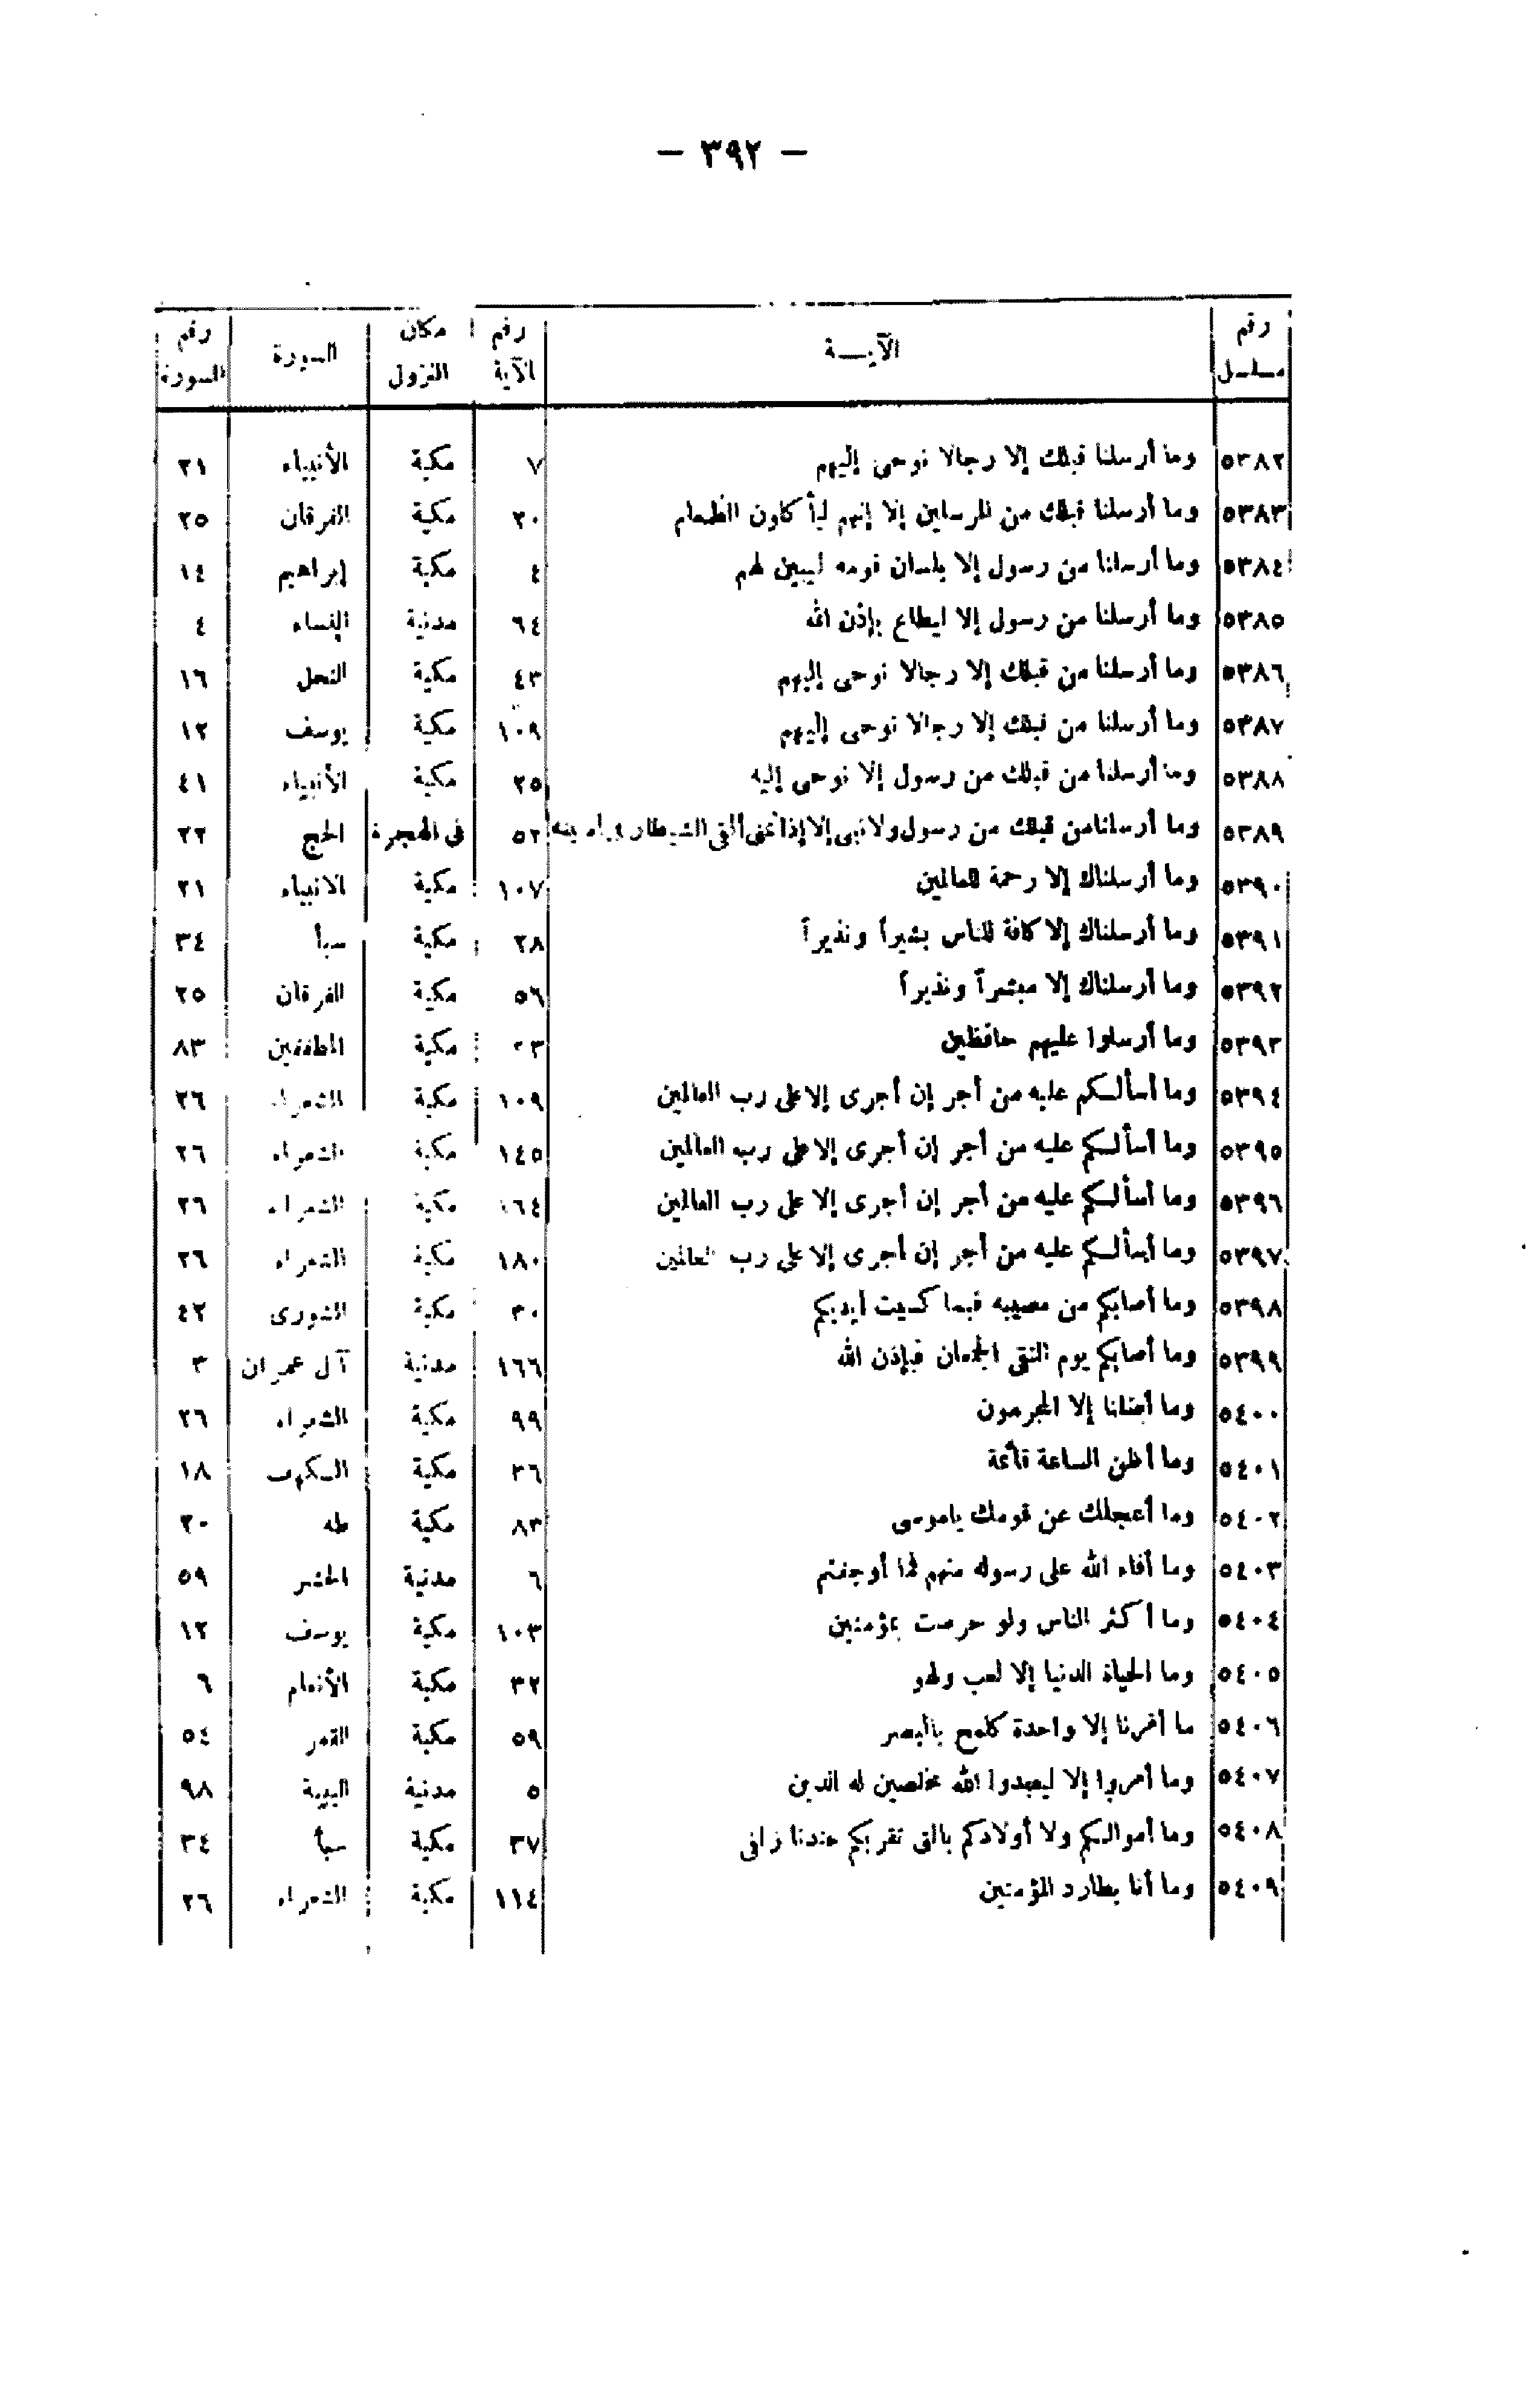 — ٣٩٢ —
رقم مسلسل الآيـــة رقم الآية مكان النزول السورة رقم السورة
٥٣٨٢ وما أرسلنا قبلك إلا رجالا نوحى إليهم ٧ مكية الأنبياء ٢١
٥٣٨٣ وما أرسلنا قبلك من المرسلين إلا إنهم ليأكلون الطعام ٢٠ مكية الفرقان ٢٥
٥٣٨٤ وما أرسلنا من رسول إلا بلسان قومه ليبين لهم ٤ مكية إبراهيم ١٤
٥٣٨٥ وما أرسلنا من رسول إلا ليطاع بإذن الله ٦٤ مدنية النساء ٤
٥٣٨٦ وما أرسلنا من قبلك إلا رجالا نوحى إليهم ٤٣ مكية النحل ١٦
٥٣٨٧ وما أرسلنا من قبلك إلا رجالا نوحى إليهم ١٠٩ مكية يوسف ١٢
٥٣٨٨ وما أرسلنا من قبلك من رسول إلا نوحى إليه ٢٥ مكية الأنبياء ٤١
٥٣٨٩ وما أرسلنا من قبلك من رسول ولا نبى إلا إذا تمنى ألقى الشيطان فى أمنيته ٥٢ فى الهجرة الحج ٢٢
٥٣٩٠ وما أرسلناك إلا رحمة للعالمين ١٠٧ مكية الانبياء ٢١
٥٣٩١ وما أرسلناك إلا كافة للناس بشيراً ونذيراً ٢٨ مكية سبأ ٣٤
٥٣٩٢ وما أرسلناك إلا مبشراً ونذيراً ٥٦ مكية الفرقان ٢٥
٥٣٩٣ وما أرسلوا عليهم حافظين ٣٣ مكية المطففين ٨٣
٥٣٩٤ وما أسألكم عليه من أجر إن أجرى إلا على رب العالمين ١٠٩ مكية الشعراء ٢٦
٥٣٩٥ وما أسألكم عليه من أجر إن أجرى إلا على رب العالمين ١٤٥ مكية الشعراء ٢٦
٥٣٩٦ وما أسألكم عليه من أجر إن أجرى إلا على رب العالمين ١٦٤ مكية الشعراء ٢٦
٥٣٩٧ وما أسألكم عليه من أجر إن أجرى إلا على رب العالمين ١٨٠ مكية الشعراء ٢٦
٥٣٩٨ وما أصابكم من مصيبه فبما كسبت أيديكم ٣٠ مكية الشورى ٤٢
٥٣٩٩ وما أصابكم يوم التقى الجمعان فبإذن الله ١٦٦ مدنية آل عمران ٣
٥٤٠٠ وما أضلنا إلا المجرمون ٩٩ مكية الشعراء ٢٦
٥٤٠١ وما أظن الساعة قائمة ٣٦ مكية الكهف ١٨
٥٤٠٢ وما أعجلك عن قومك ياموسى ٨٣ مكية طه ٢٠
٥٤٠٣ وما أفاء الله على رسوله منهم فما أوجفتم ٦ مدنية الحشر ٥٩
٥٤٠٤ وما أكثر الناس ولو حرصت بمؤمنين ١٠٣ مكية يوسف ١٢
٥٤٠٥ وما الحياة الدنيا إلا لعب ولهو ٣٢ مكية الأنعام ٦
٥٤٠٦ ما أمرنا إلا واحدة كلمح بالبصر ٥٩ مكية القمر ٥٤
٥٤٠٧ وما أمروا إلا ليعبدوا الله مخلصين له الدين ٥ مدنية البينة ٩٨
٥٤٠٨ وما أموالكم ولا أولادكم بالتى تقربكم عندنا زلفى ٣٧ مكية سبأ ٣٤
٥٤٠٩ وما أنا بطارد المؤمنين ١١٤ مكية الشعراء ٢٦